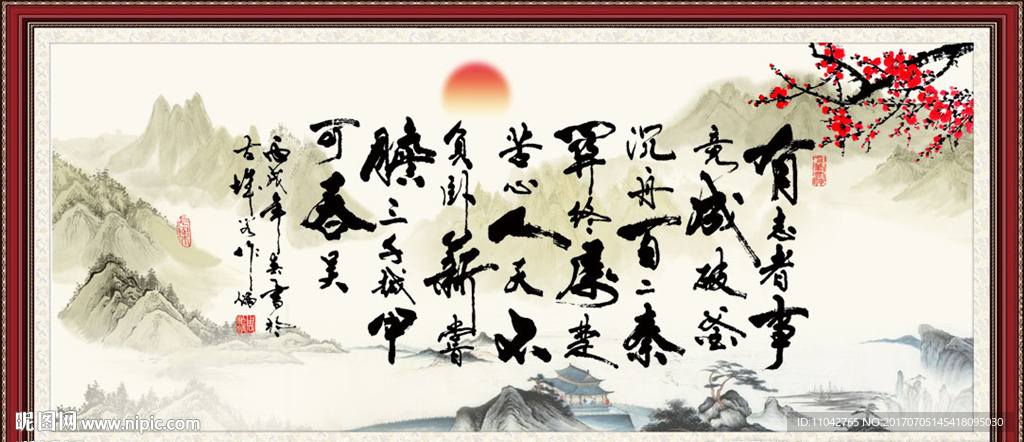 有志者事
竟成破釜
沉舟百二秦
關終屬楚
苦心人天不
負卧薪嘗
膽三千越甲
可吞吴
丙戌年書於
昵图网 www.nipic.com
ID:11042765 NO:20170705145418095030